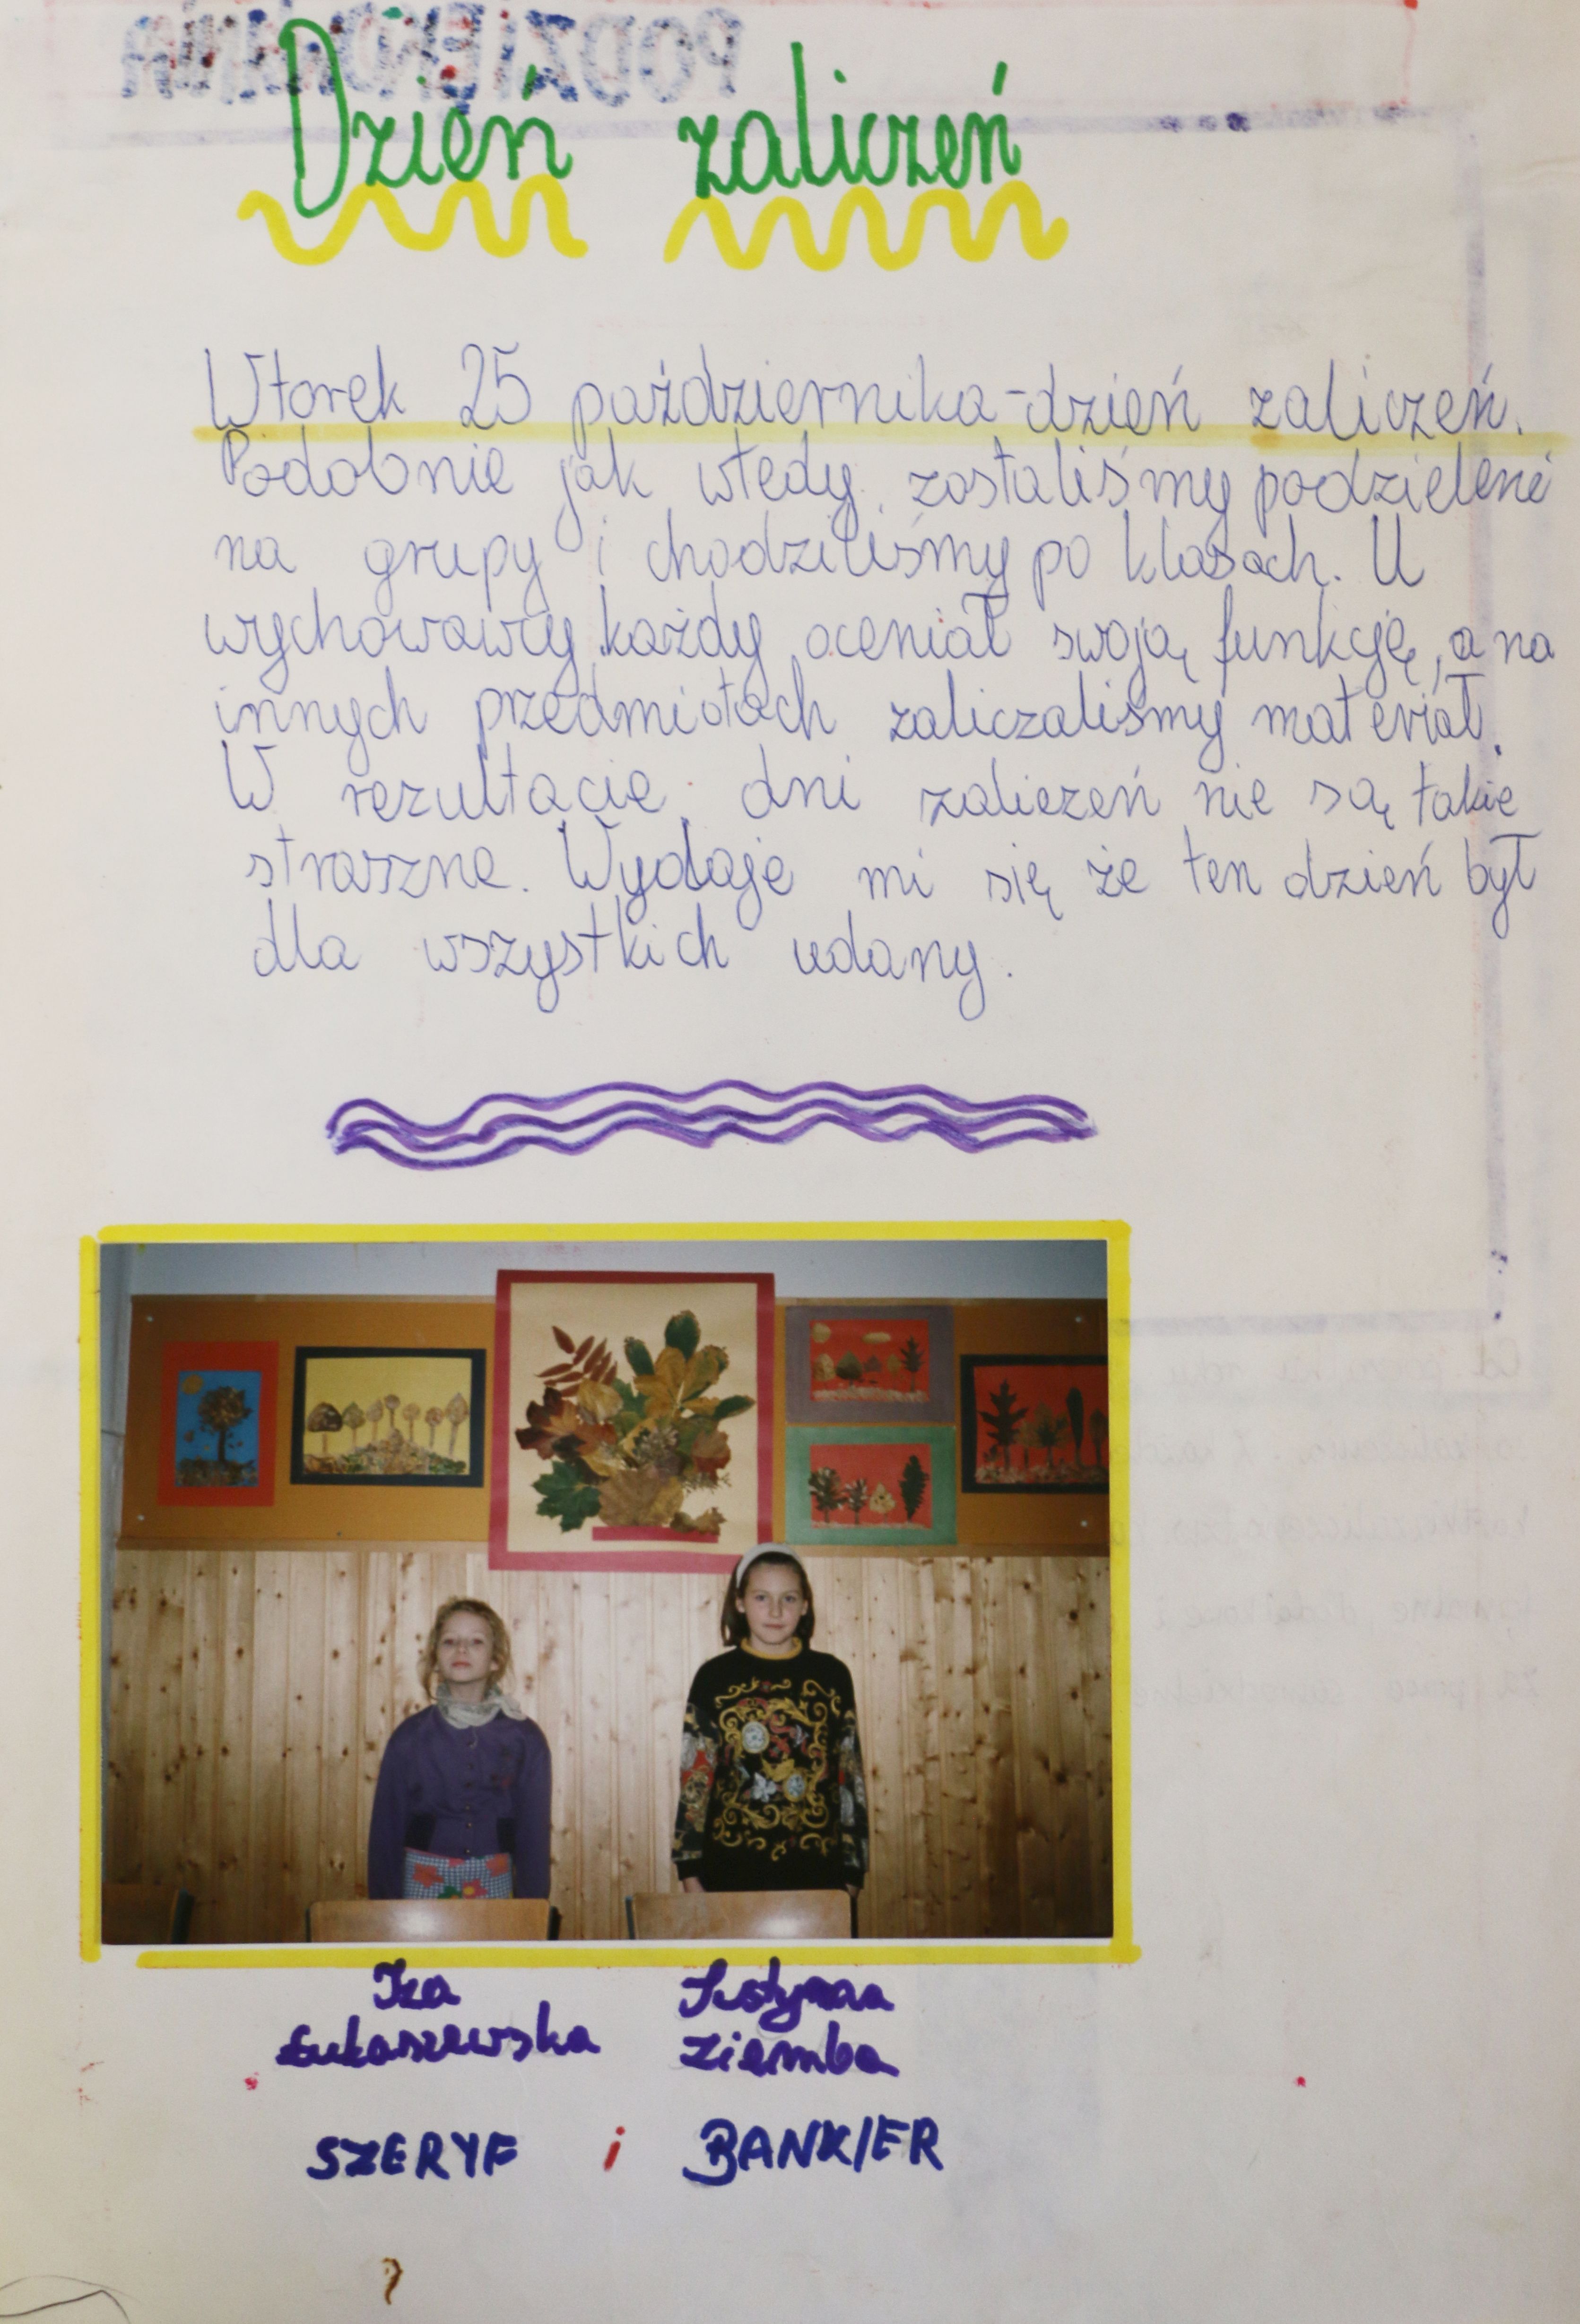 Dzień zaliczeń
Wtorek 25 października - dzień zaliczeń.
Podobnie jak wtedy, zostaliśmy podzieleni
na grupy i chodziliśmy po klasach. U
wychowawcy każdy oceniał swoją funkcję, a na
innych przedmiotach zaliczaliśmy materiał.
W rezultacie dni zaliczeń nie są takie
straszne. Wydaje mi się że ten dzień był
dla wszystkich udany.
Iza Justyna
Łukaszewska Ziemba
SZERYF i BANKIER